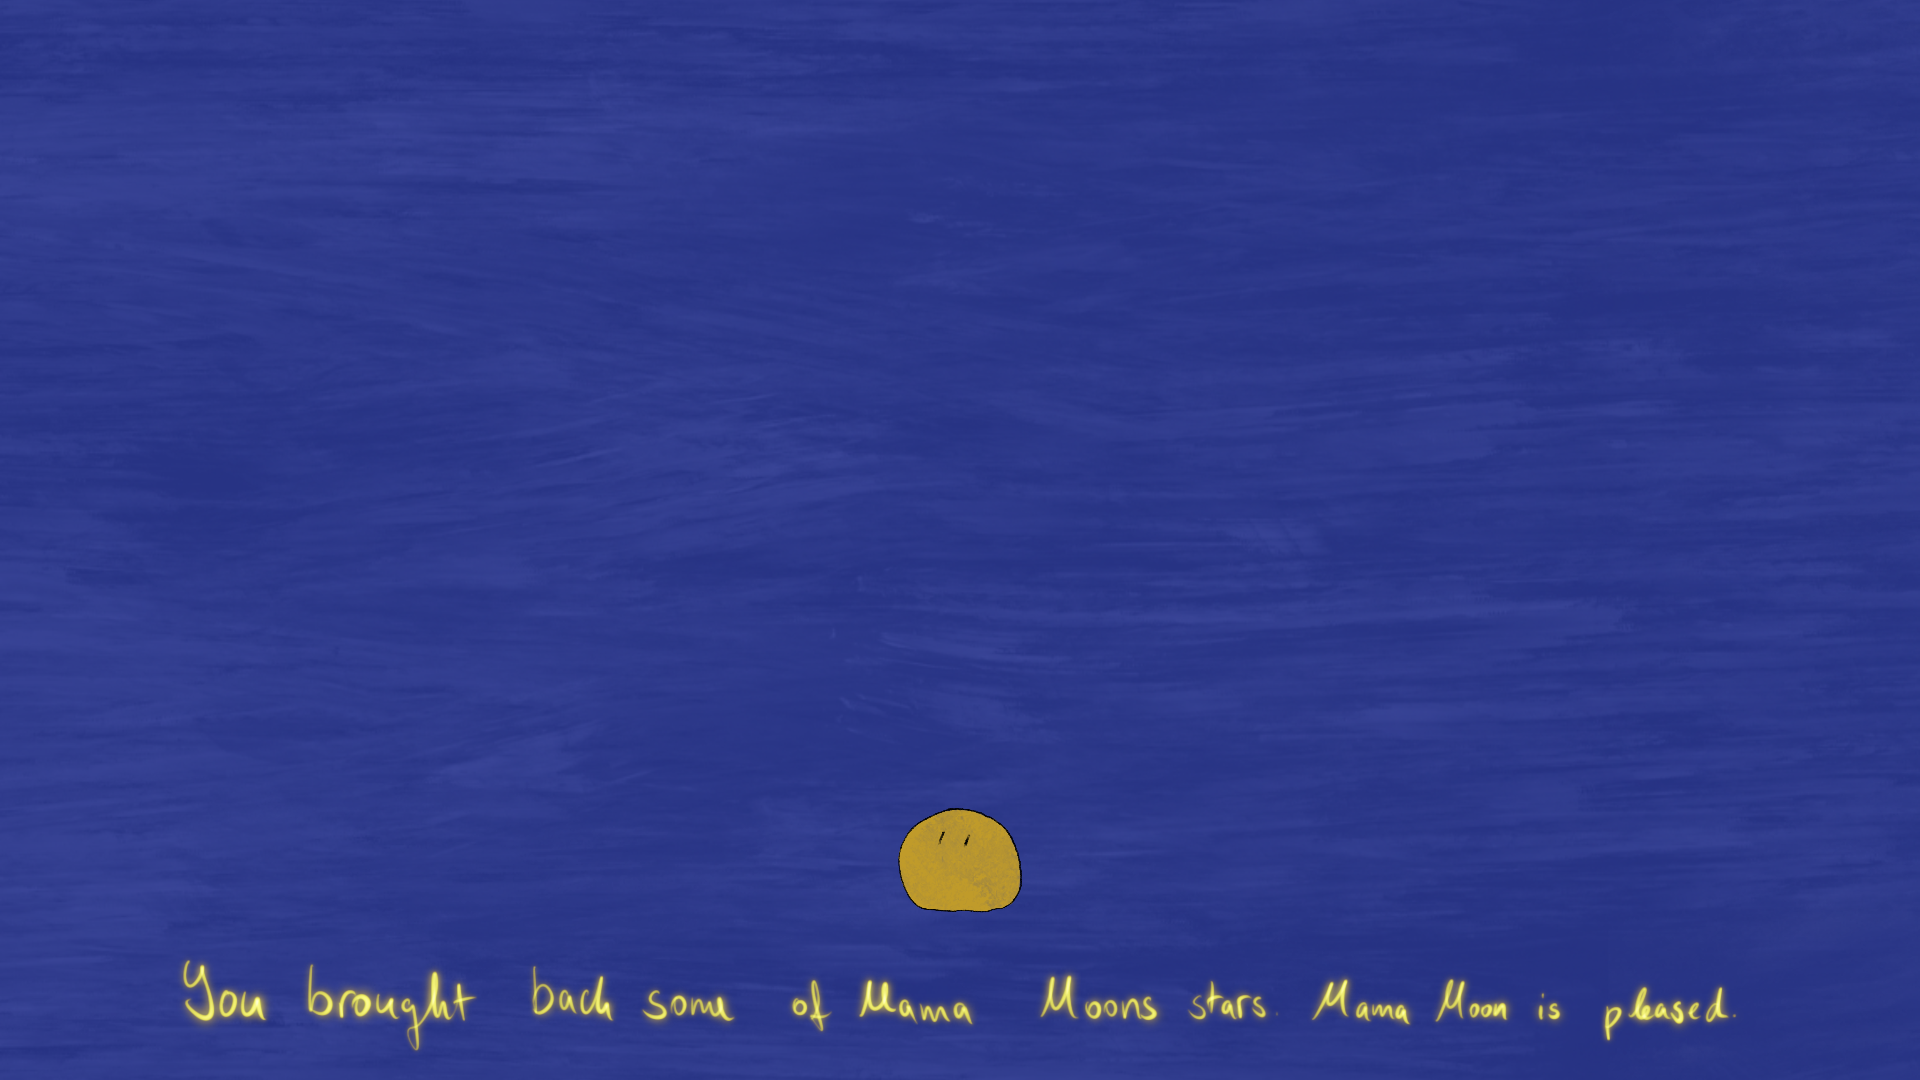 You brought back some of Mama Moons stars. Mama Moon is pleased.